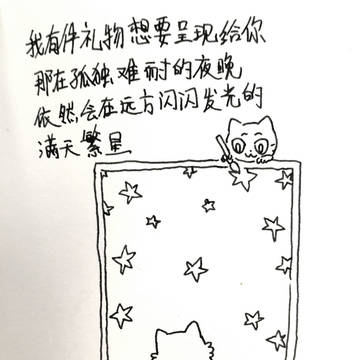 我有件礼物想要呈现给你
那在孤独难耐的夜晚
依然会在远方闪闪发光的
满天繁星